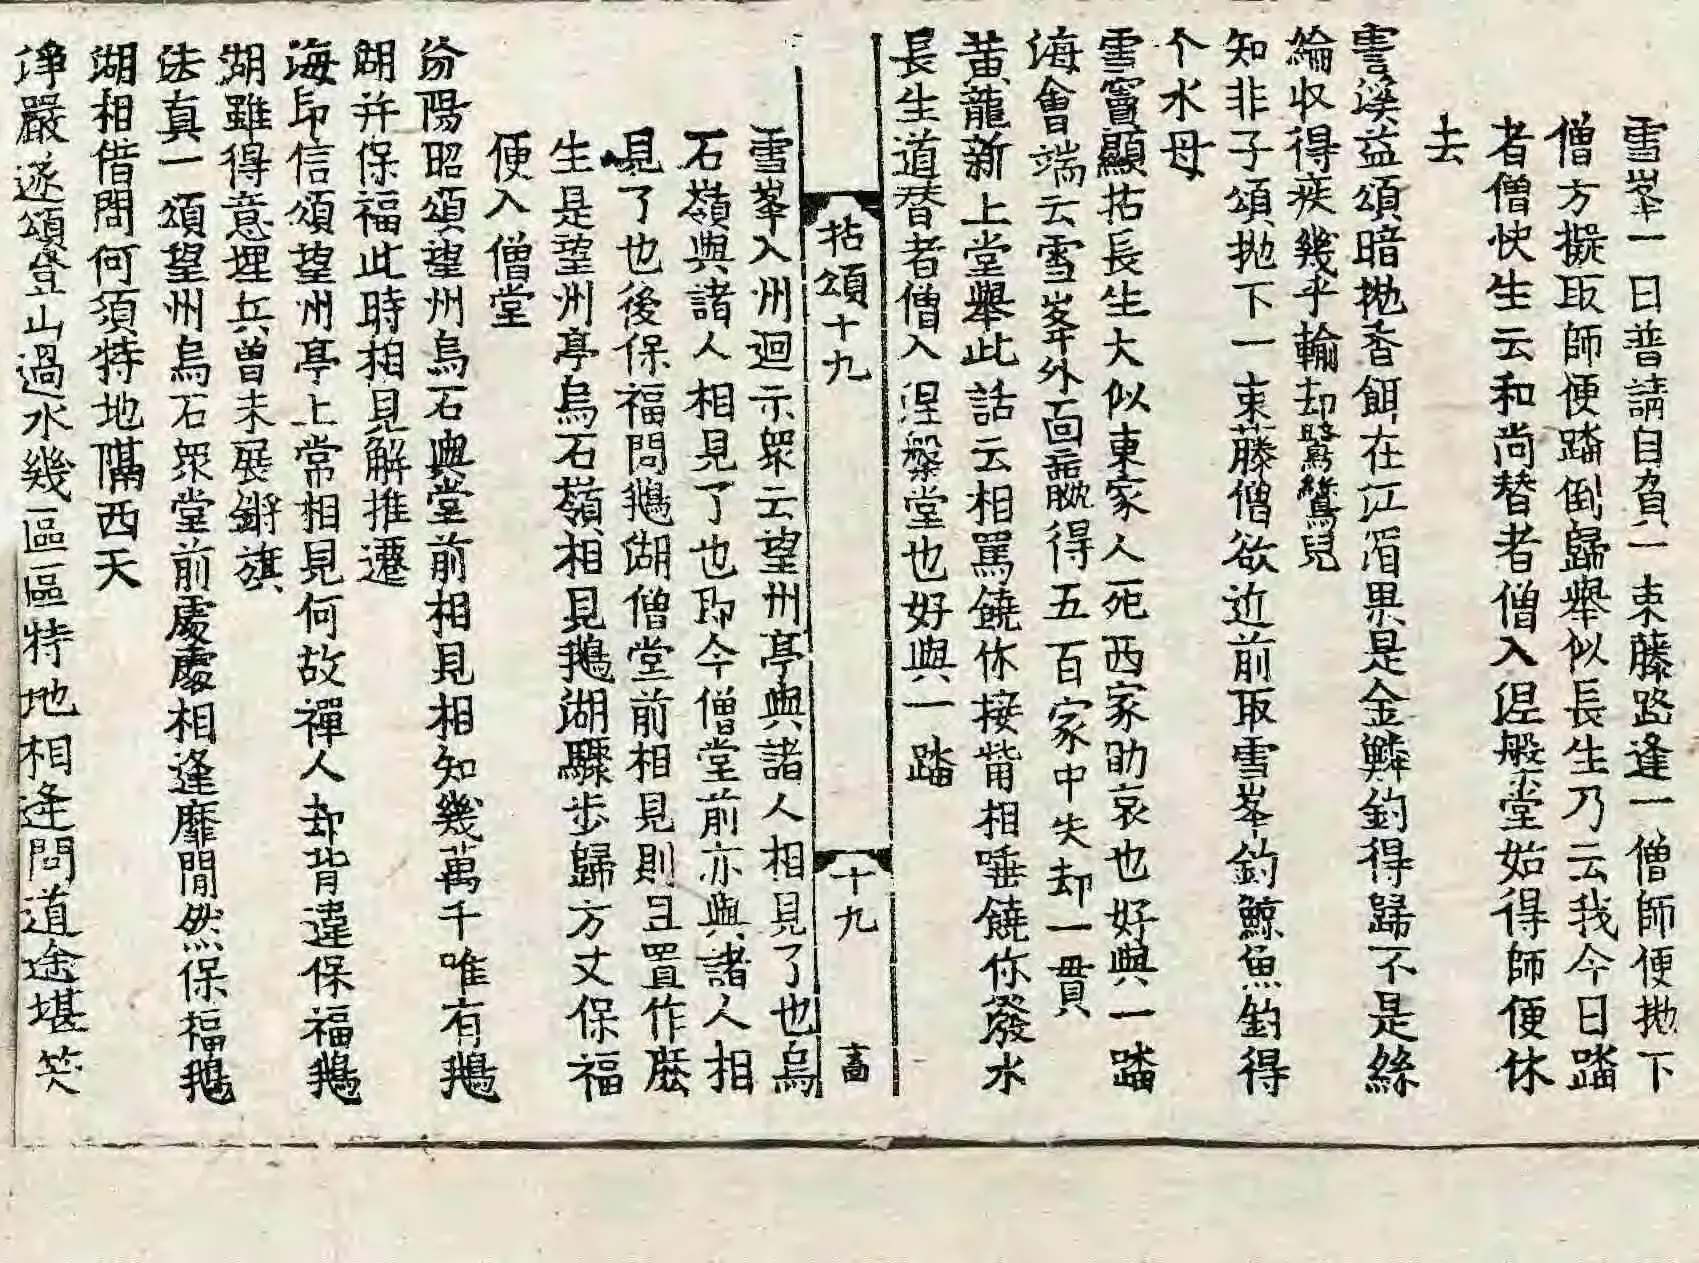 雪峯一日普請自負一束藤路逢一僧師便抛下
僧方擬取師便踏倒歸舉似長生乃云我今日踏
者僧快生云和尚替者僧入涅般堂始得師便休
去
霅溪益頌暗抛香餌在江湄果是金鱗釣得歸不是絲
綸収得疾幾乎輸却鷺鷥兒
知非子頌抛下一束藤僧欲近前取雪峯釣鯨魚釣得
个水母
雪竇顯拈長生大似東家人死西家助哀也好與一踏
海會端云雪峯外面贏得五百家中失却一貫
黄龍新上堂舉此話云相罵饒你接觜相唾饒你潑水
長生道替者僧入涅槃堂也好與一踏
拈頌十九
十九
雪峯入州迴示眾云望州亭與諸人相見了也烏
石嶺與諸人相見了也即今僧堂前亦與諸人相
見了也後保福問鵝湖僧堂前相見則且置作麽
生是望州亭烏石嶺相見鵝湖驟步歸方丈保福
便入僧堂
汾陽昭頌望州烏石與堂前相見相知幾萬千唯有鵝
湖并保福此時相見解推遷
海印信頌望州亭上常相見何故禪人却背違保福鵝
湖雖得意埋兵曾未展鏘旗
法真一頌望州烏石眾堂前處處相逢靡間然保福鵝
湖相借問何須特地隔西天
淨嚴遂頌登山過水幾區區特地相逢問道途堪笑